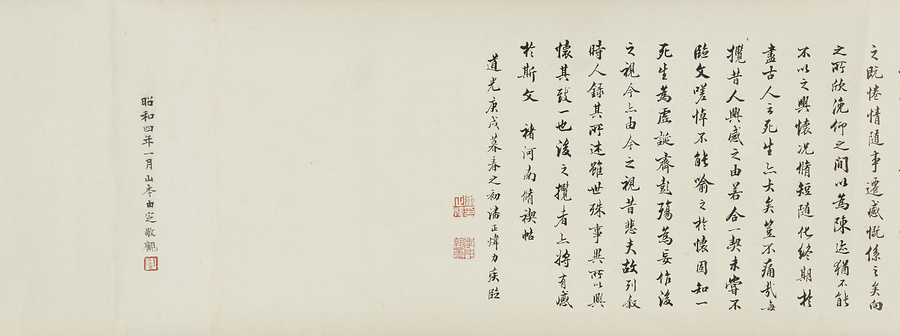 之既惓情隨事遷感慨係之矣向
之所欣俛仰之間以為陳迹猶不能
不以之興懷况脩短隨化終期於
盡古人云死生亦大矣豈不痛哉每
攬昔人興感之由若合一契未嘗不
臨文嗟悼不能喻之於懷固知一
死生為虛誕齊彭殤為妄作後
之視今亦由今之視昔悲夫故列敘
時人錄其所述雖世殊事異所以興
懷其致一也後之攬者亦將有感
於斯文 褚河南脩禊帖
道光庚戌暮春之初潘正煒力疾臨
昭和四年一月山本由定敬觀